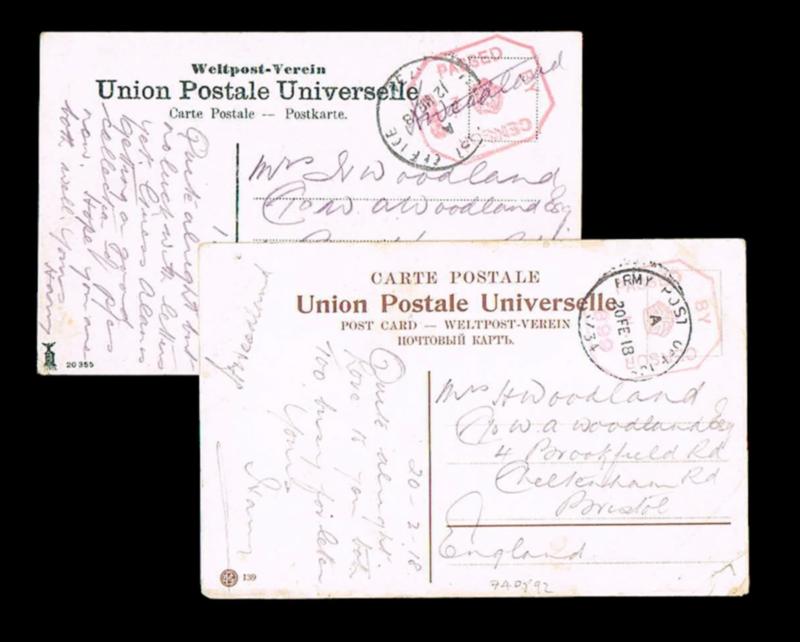 Weltpost-Verein
Union Postale Universelle
Carte Postale — Postkarte.
PASSED BY
CENSOR
POST OFFICE
A
12
18
HWoodland
Quite alright but
no luck with letters
yet. Guess Alan's
getting a good
collection of ppcs
now. Hope you are
both well. Yours
Harry
Mrs H Woodland
C/o W A Woodland Esq
20355
CARTE POSTALE
Union Postale Universelle
POST CARD — WELTPOST-VEREIN
ПОЧТОВЫЙ КАРТЪ.
ARMY POST OFFICE
A
20 FE 18
PASSED BY
CENSOR
HWoodland
20-2-18
Quite alright.
Love to you both
Too busy for letter
Yours
Harry
Mrs H Woodland
C/o W A Woodland Esq
4 Brookfield Rd
Cheltenham Rd
Bristol
England.
139